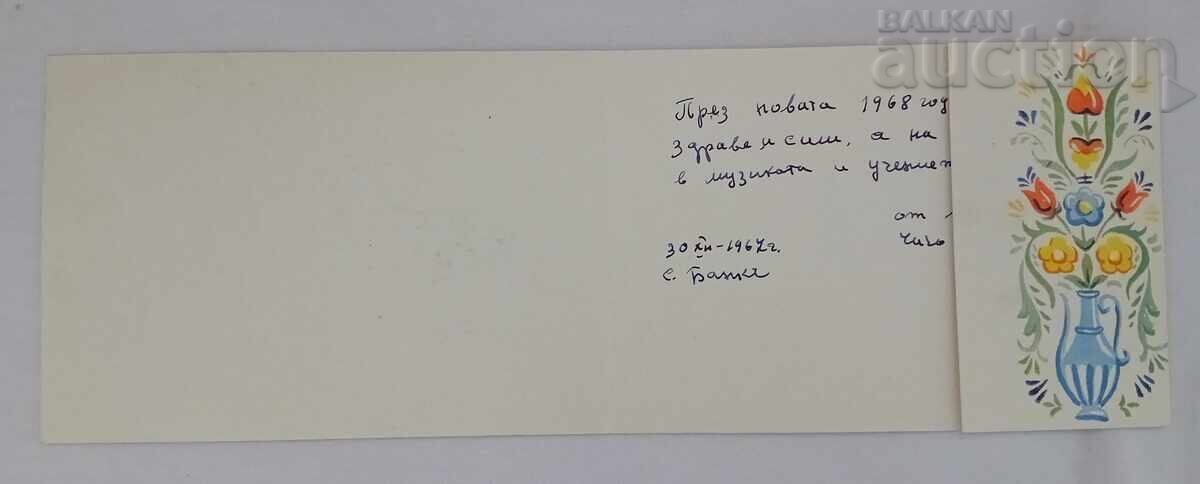 BALKAN
auction
През новата 1968 год
здраве и сили, а на
в музиката и учениет
от
30 XII-1967г.
Чичо
с. Баня